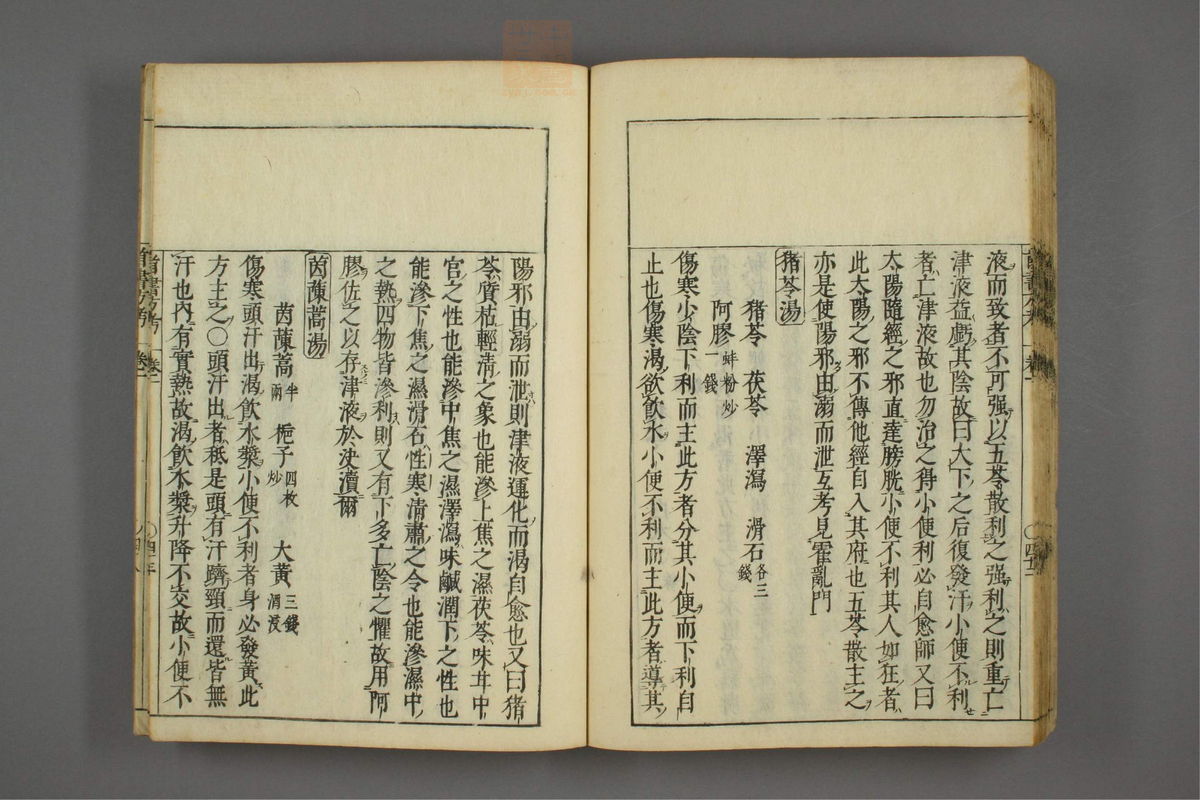 液而致者不可强以五苓散利之强利之則重亡
津液益虧其陰故曰大下之后復發汗小便不利
者亡津液故也勿治之得小便利必自愈師又曰
太陽隨經之邪直達膀胱小便不利其人如狂者
此太陽之邪不傳他經自入其府也五苓散主之
亦是使陽邪由溺而泄互考見霍亂門
猪苓湯
猪苓 茯苓 澤瀉 滑石各三錢
阿膠蚌粉炒一錢
傷寒少陰下利而主此方者分其小便而下利自
止也傷寒渴欲飲水小便不利而主此方者導其
陽邪由溺而泄則津液運化而渴自愈也又曰猪
苓質枯輕淸之象也能滲上焦之濕茯苓味甘中
官之性也能滲中焦之濕澤瀉味鹹潤下之性也
能滲下焦之濕滑石性寒淸肅之令也能滲濕中
之熱四物皆滲利則又有下多亡陰之懼故用阿
膠佐之以存津液於决瀆爾
茵蔯蒿湯
茵蔯蒿半兩 梔子四枚炒 大黃三錢酒浸
傷寒頭汗出渴飲水漿小便不利者身必發黃此
方主之〇頭汗出者秖是頭有汗躋頸而還皆無
汗也内有實熱故渴飲水漿升降不交故小便不